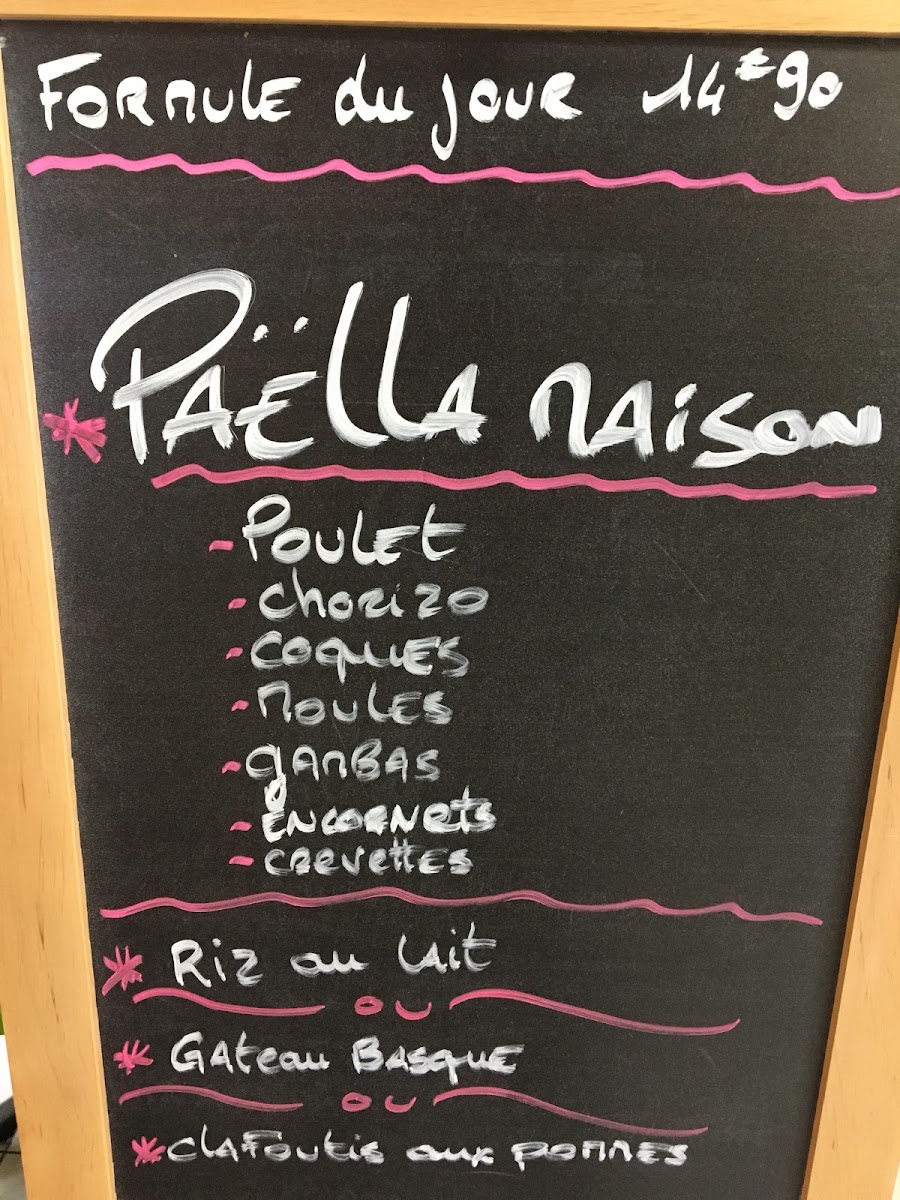 Formule du jour 14€90
* Paëlla maison
- Poulet
- chorizo
- coques
- moules
- gambas
- encornets
- crevettes
* Riz au lait
ou
* Gateau Basque
ou
* clafoutis aux pommes